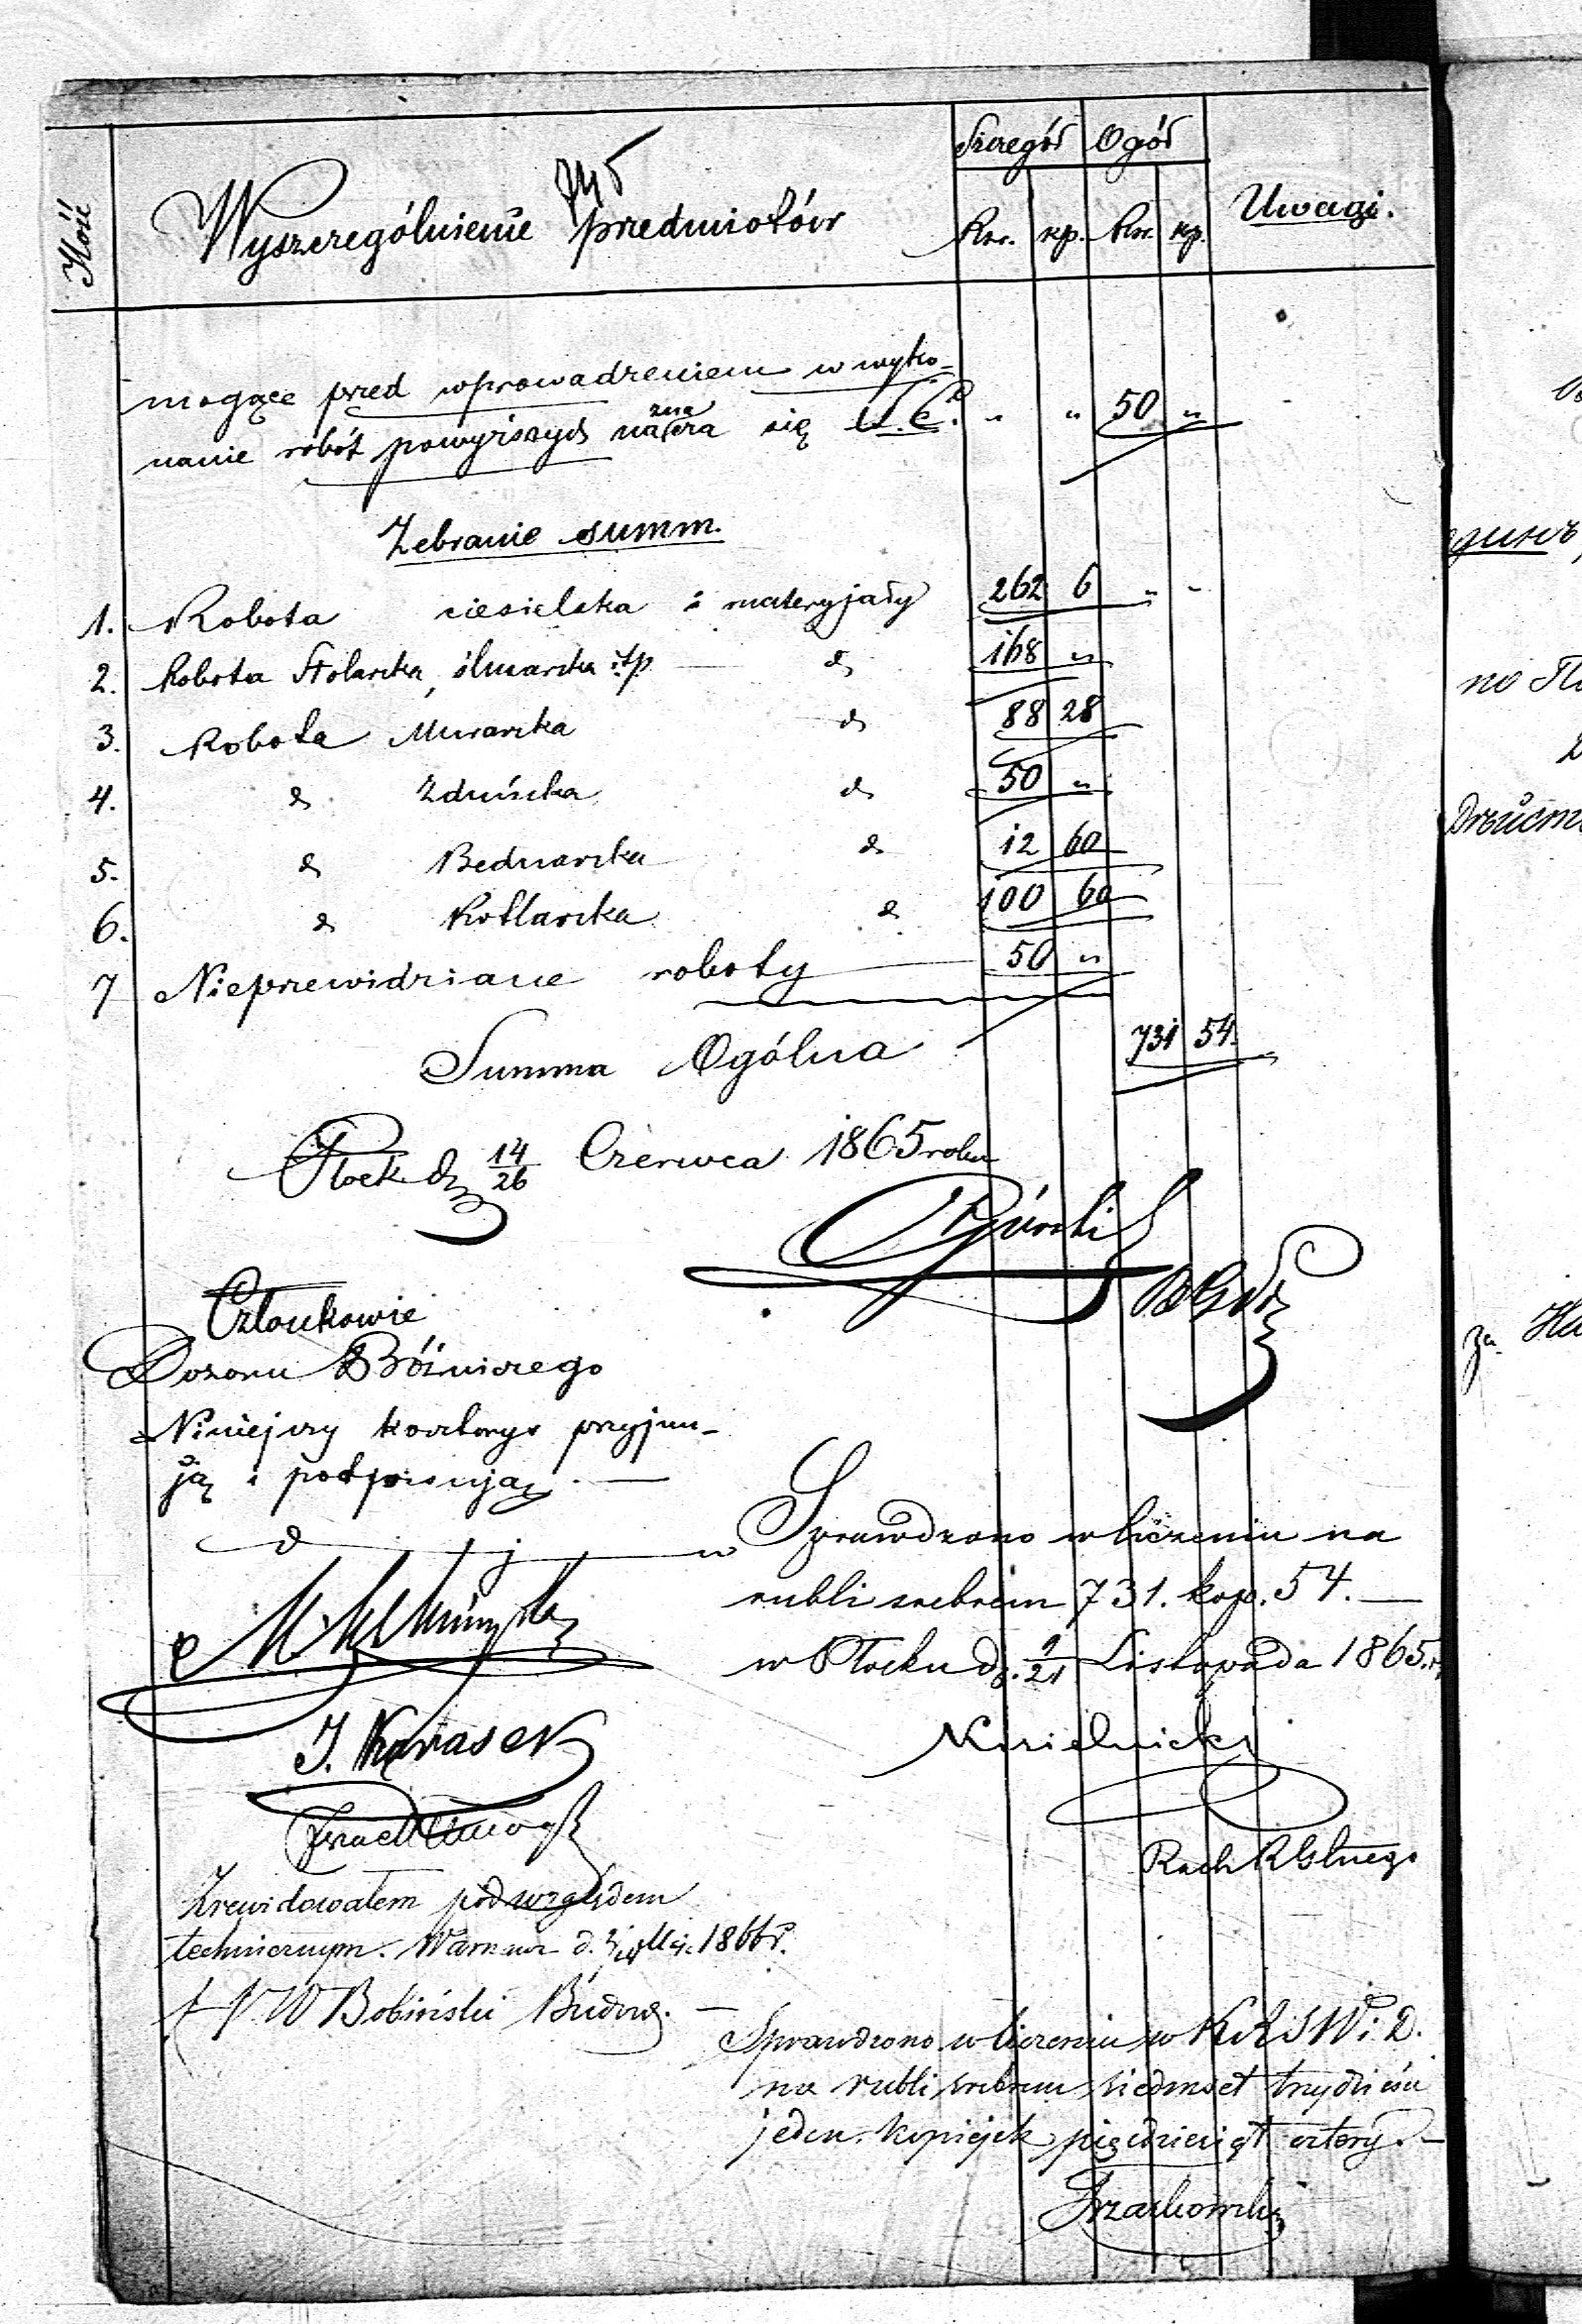 Ilość Wyszczególnienie przedmiotów Szczegół Ogół Uwagi.
Rsr. kp. Rsr. kp.
mogące przed wprowadzeniem w wyko-
nanie robót powyższych się " " 50 "
Zebranie summ.
1. Robota ciesielska i materyjały 262 6 " "
2. Robota Stolarska, ślusarska itp. d 168 "
3. Robota Murarska d 88 28
4. d Zduńska d 50 "
5. d Bednarska d 12 60
6. d Kotlarska d 100 60
7 Nieprzewidziane roboty 50 "
Summa Ogólna 731 54.
Płock d. 14/26 Czerwca 1865 roku
Górski
Członkowie
Dozoru Bóźniczego
Niniejszy kosztorys przyjmu-
ją i podpisują. —
Sprawdzono w liczeniu na
rubli srebrem 731. kop. 54. —
w Płocku d. 9/21 Listopada 1865 r.
J. Karasek
Kisielnicki
Rach R Glnego
Zrewidowałem pod względem
technicznym. Warszawa d. 1866 r.
W Bobiński Budow. —
Sprawdzono w liczeniu w KRSW i D.
na rubli srebrem siedmset trzydzieści
jeden. kopiejek pięćdziesiąt cztery. —